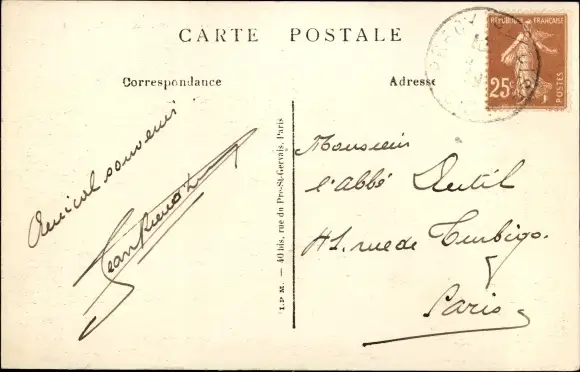 CARTE POSTALE
Correspondance
Adresse
RÉPUBLIQUE FRANÇAISE
25c
POSTES
Amical souvenir
I.P.M. — 40 bis, rue du Pré-St-Gervais, Paris
Monsieur
l'abbé
41. rue de Turbigo.
Paris